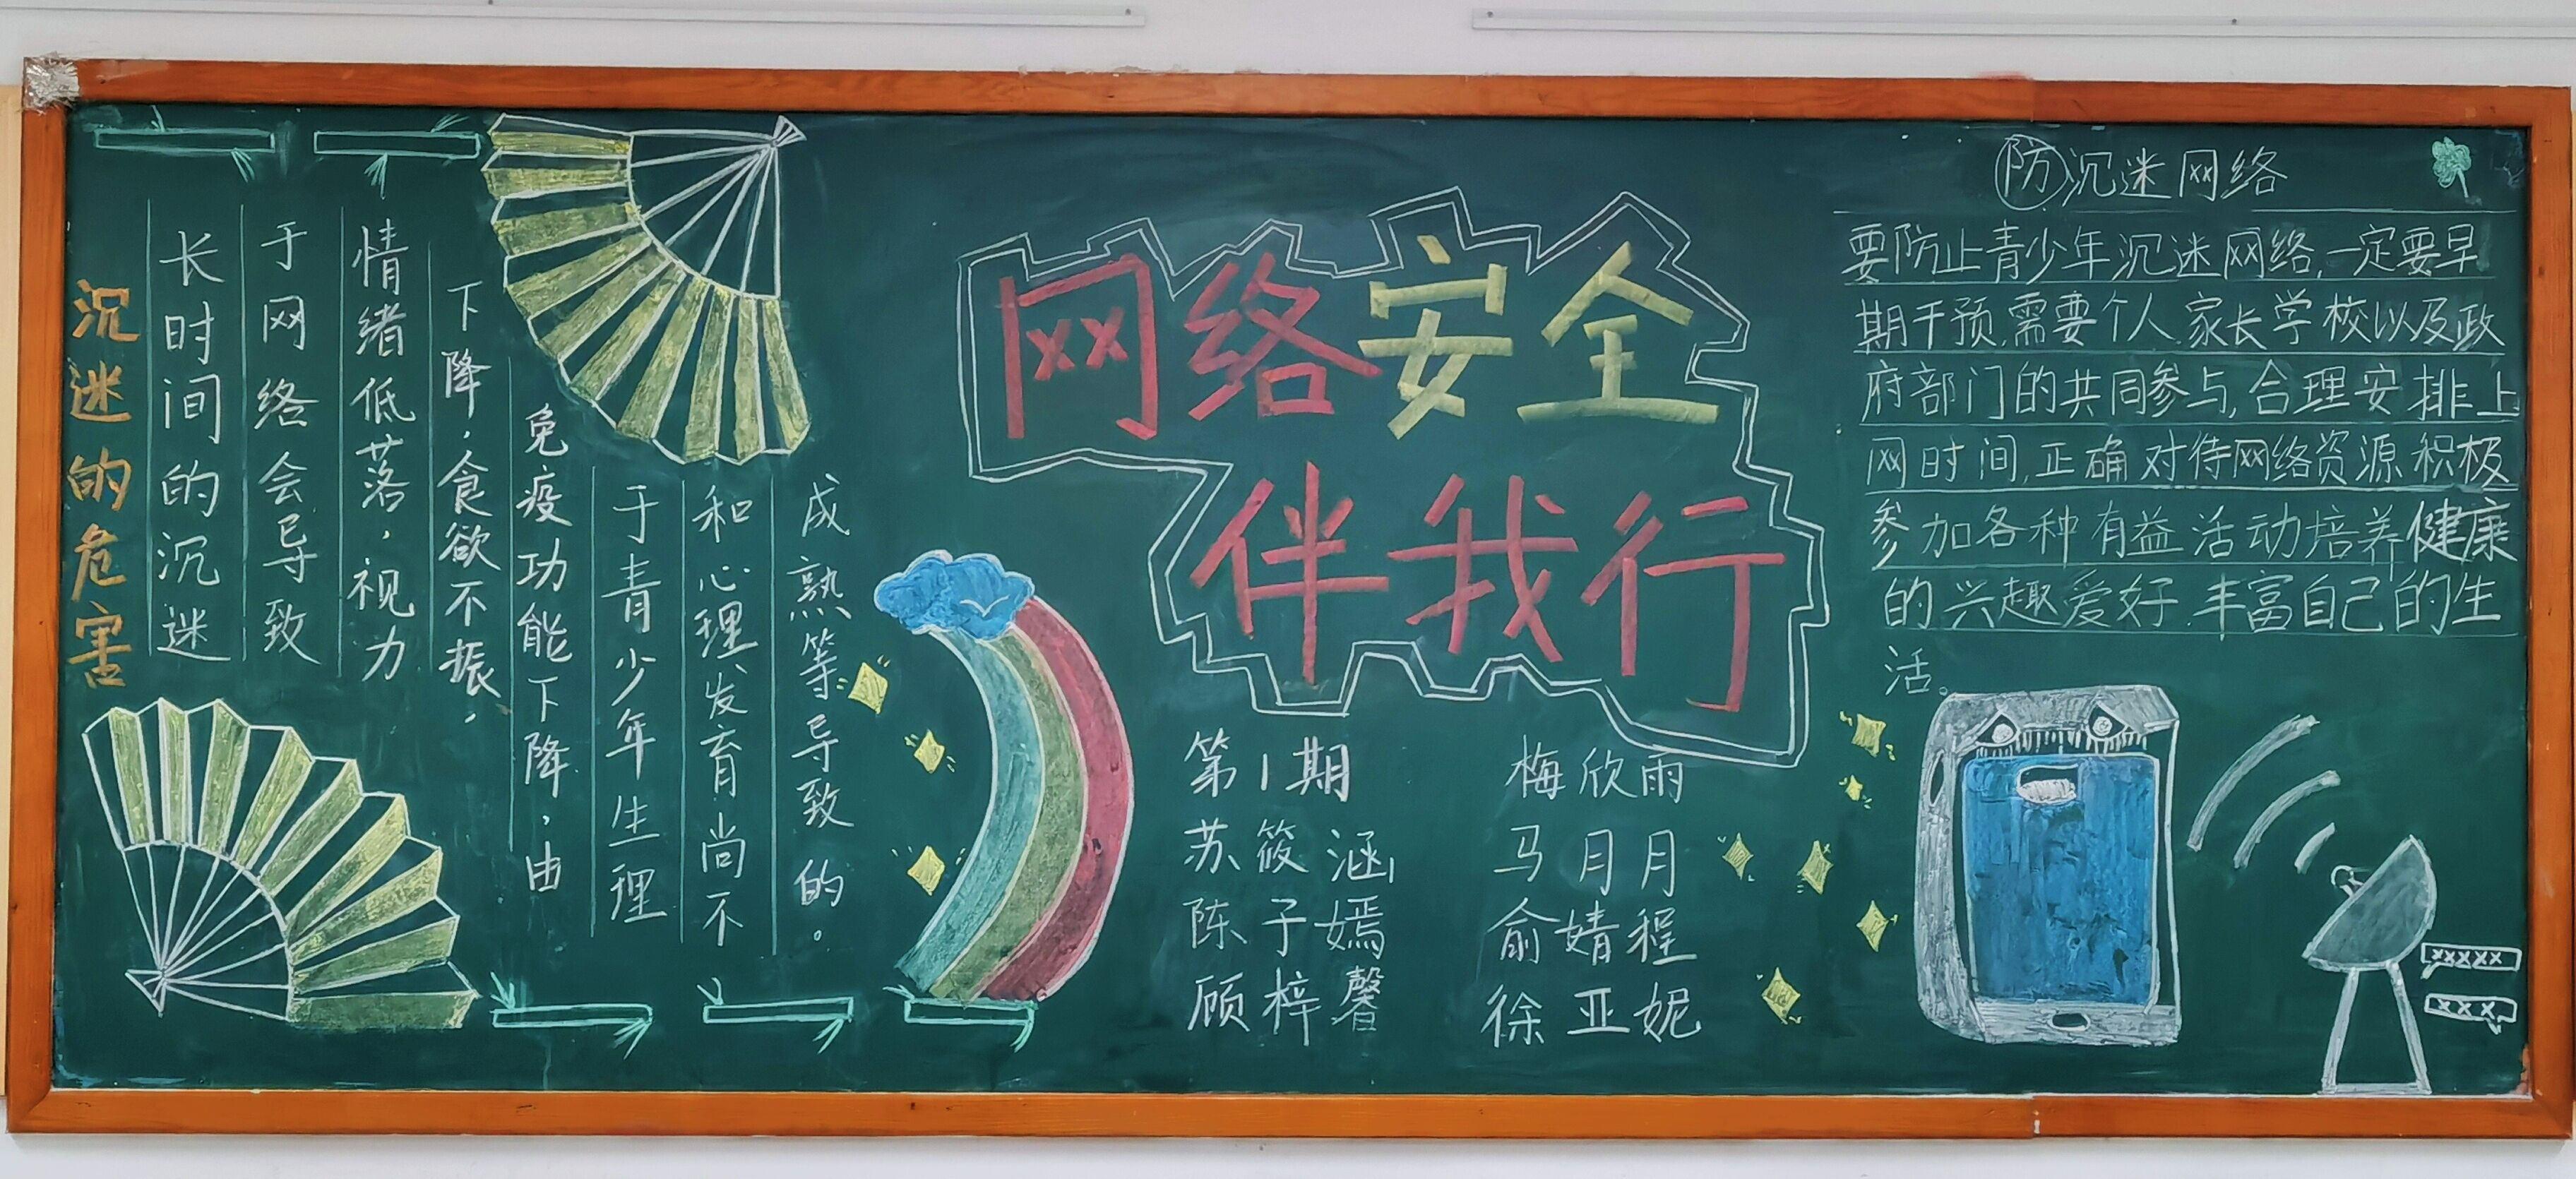 沉迷的危害
长时间的沉迷
于网络会导致
情绪低落，视力
下降，食欲不振，
免疫功能下降，由
于青少年生理
和心理、发育尚不
成熟等导致的。
网络安全
伴我行
第1期
苏筱涵
陈子嫣
顾梓馨
梅欣雨
马月月
俞婧程
徐亚妮
防沉迷网络
要防止青少年沉迷网络,一定要早
期干预,需要个人.家长学校以及政
府部门的共同参与,合理安排上
网时间,正确对待网络资源积极
参加各种有益活动培养健康
的兴趣爱好.丰富自己的生
活。
xxxxx
xxx